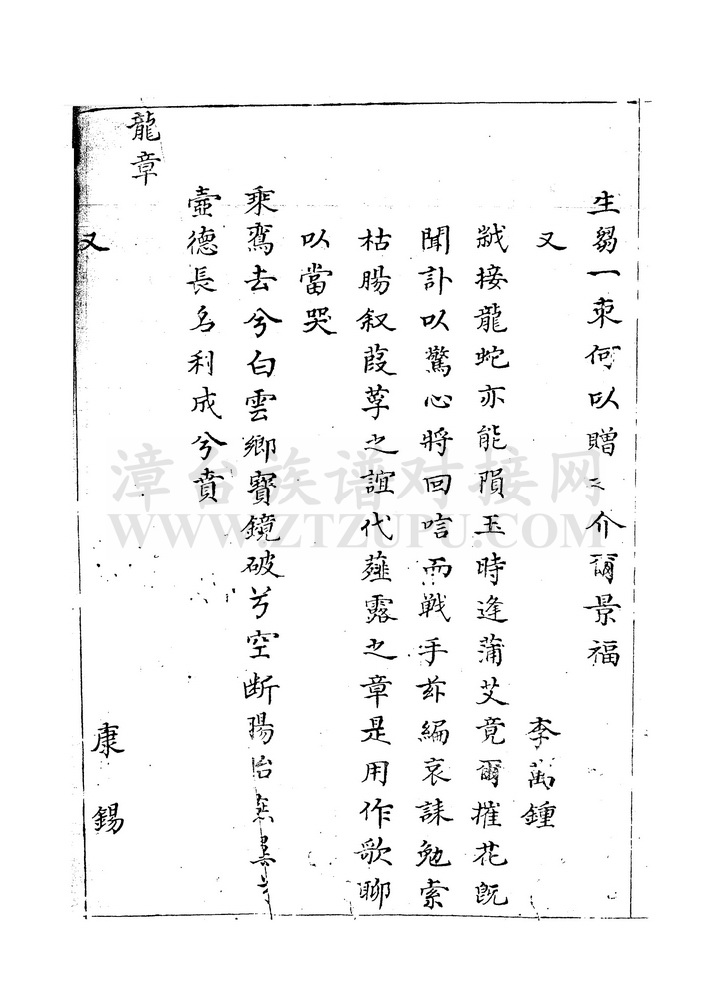 生芻一束何以贈〻介爾景福
又　李萬鍾
緘接龍蛇亦能隕玉時逢蒲艾竟爾摧花既
聞訃以驚心將回唁而戰手茲編哀誄勉索
枯腸叙葭莩之誼代薤露之章是用作歌聊
以當哭
乘鸞去兮白雲鄉寶鏡破兮空断腸
壼德長名利成兮賁
龍章
又　康錫
漳台族谱对接网
WWW.ZTZUPU.COM